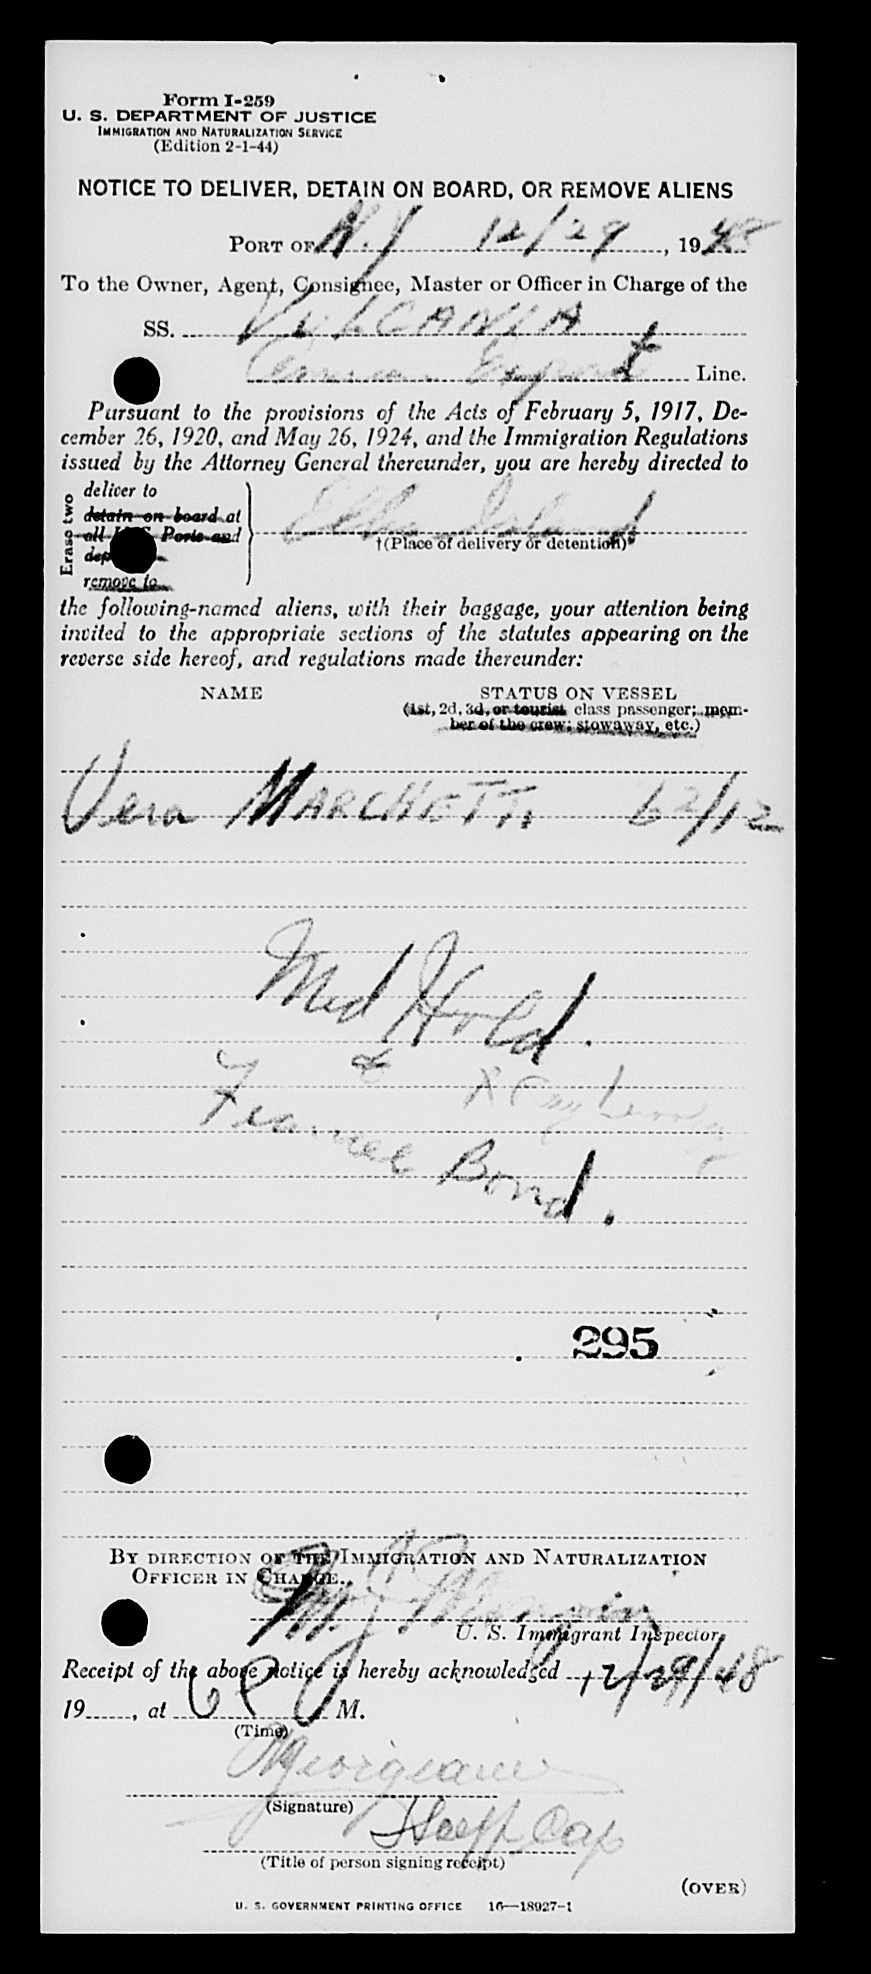 Form I-259
U. S. DEPARTMENT OF JUSTICE
IMMIGRATION AND NATURALIZATION SERVICE
(Edition 2-1-44)
NOTICE TO DELIVER, DETAIN ON BOARD, OR REMOVE ALIENS
PORT OF N.Y 12/29, 1948
To the Owner, Agent, Consignee, Master or Officer in Charge of the
SS. VULCANIA
Export Line.
Pursuant to the provisions of the Acts of February 5, 1917, De-
cember 26, 1920, and May 26, 1924, and the Immigration Regulations
issued by the Attorney General thereunder, you are hereby directed to
Erase two
deliver to
detain on board at
all U.S. Ports and
remove to
Ellis Island
†(Place of delivery or detention)
the following-named aliens, with their baggage, your attention being
invited to the appropriate sections of the statutes appearing on the
reverse side hereof, and regulations made thereunder:
NAME STATUS ON VESSEL
(1st, 2d, 3d, or tourist class passenger; mem-
ber of the crew; stowaway, etc.)
Vera MARCHETTI 62/12
Med Hold.
&
Fiancee Bond.
295
BY DIRECTION OF THE IMMIGRATION AND NATURALIZATION
OFFICER IN CHARGE.
M. J.
U. S. Immigrant Inspector
Receipt of the above notice is hereby acknowledged 12/29/48
19......, at 6 P M.
(Time)
(Signature)
Staff Cap
(Title of person signing receipt)
(OVER)
U. S. GOVERNMENT PRINTING OFFICE 16—18927-1